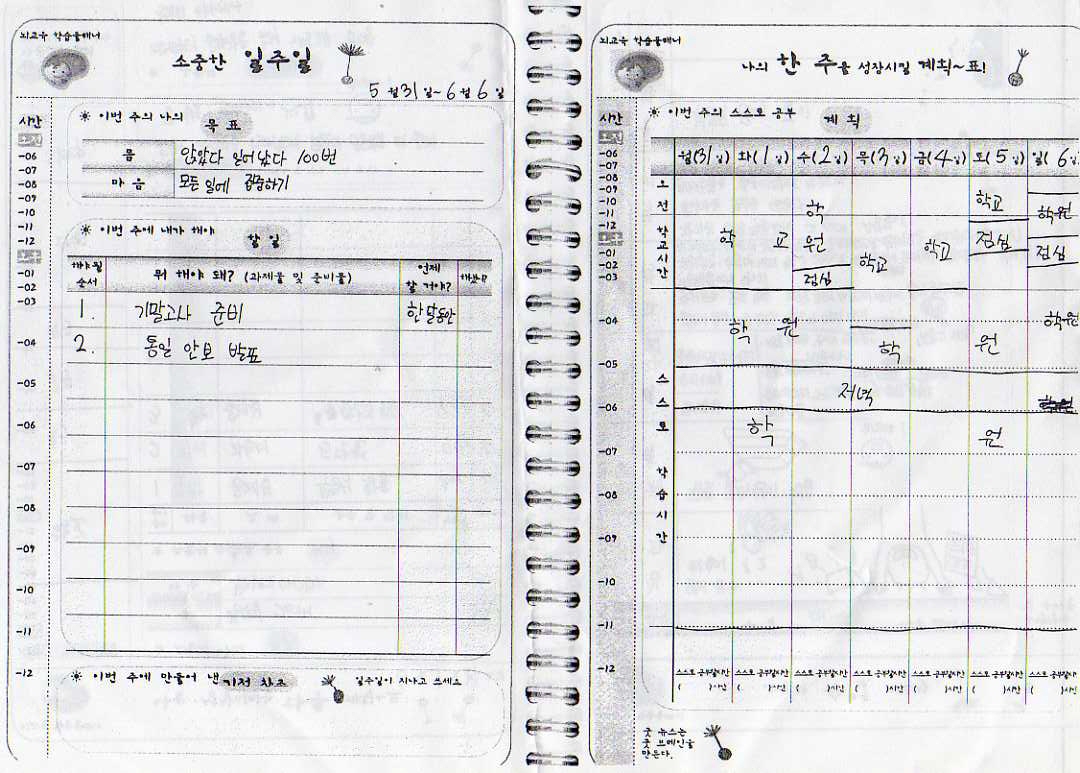 뇌교육 학습플래너
소중한 일주일
5월 31일~6월 6일
시간
오전
-06
-07
-08
-09
-10
-11
-12
오후
-01
-02
-03
-04
-05
-06
-07
-08
-09
-10
-11
-12
☀ 이번 주의 나의 목표
몸 앉았다 일어났다 100번
마음 모든 일에 집중하기
☀ 이번 주에 내가 해야 할 일
해야될 순서 뭐 해야 돼? (과제물 및 준비물) 언제 할 거야? 했니?
1. 기말고사 준비 한달동안
2. 통일 안보 발표
☀ 이번 주에 만들어 낸 기적 창고
일주일이 지나고 쓰세요
뇌교육 학습플래너
나의 한 주를 성장시킬 계획~표!
시간
오전
-06
-07
-08
-09
-10
-11
-12
오후
-01
-02
-03
-04
-05
-06
-07
-08
-09
-10
-11
-12
☀ 이번 주의 스스로 공부 계획
월(31일) 화(1일) 수(2일) 목(3일) 금(4일) 토(5일) 일(6일
오전 학교시간
학 학교 학원
학교 원 학교 학교 점심 점심
점심
학원 학 원 학원
스스로 학습시간
저녁
학 원
스스로 공부할시간 스스로 공부할시간 스스로 공부할시간 스스로 공부할시간 스스로 공부할시간 스스로 공부할시간 스스로
( )시간 ( )시간 ( )시간 ( )시간 ( )시간 ( )시간 ( )시간
굿 뉴스는
굿 브레인을
만든다.